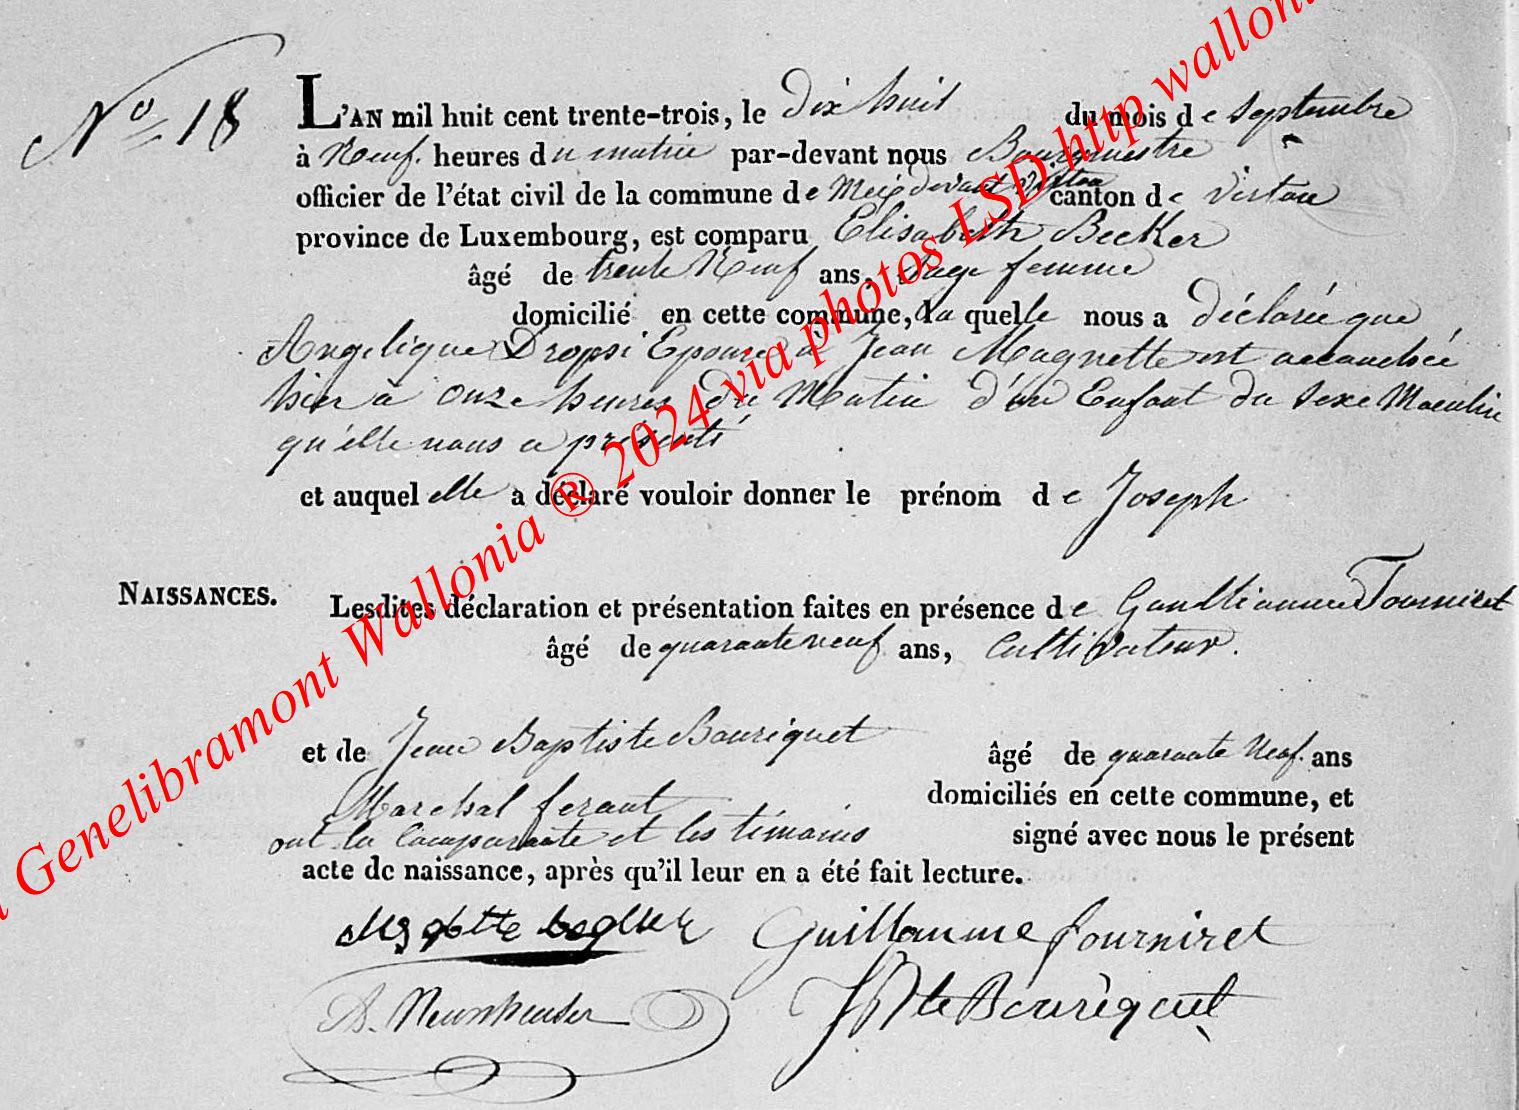 N° 18
L'AN mil huit cent trente-trois, le Dix huit du mois de Septembre
à Neuf heures du matin par-devant nous Bourgmestre
officier de l'état civil de la commune de Meix devant Virton canton de Virton
province de Luxembourg, est comparu Elisabeth Becker
âgé de trente Neuf ans, Sage femme
domicilié en cette commune, la quelle nous a déclarée que
Angelique Dropsi Epouse à Jean Magnette est accouchée
hier à onze heures du Matin d'un Enfant du Sexe Masculin
qu'elle nous a présenté
et auquel elle a déclaré vouloir donner le prénom de Joseph
NAISSANCES.
Lesdites déclaration et présentation faites en présence de Fourniret
âgé de quarante neuf ans, Cultivateur.
et de Jean Baptiste Bouriquet âgé de quarante Neuf ans
Marchal ferant domiciliés en cette commune, et
ont la Comparante et les témoins signé avec nous le présent
acte de naissance, après qu'il leur en a été fait lecture.
Guillaume fourniret
JBte Bouriquet
Genelibramont Wallonia ® 2024 via photos LSD http wallon